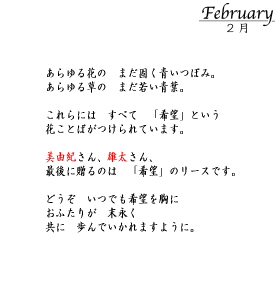 February
２月
あらゆる花の　まだ固く青いつぼみ。
あらゆる草の　まだ若い青葉。
これらには　すべて　「希望」という
花ことばがつけられています。
美由紀さん、雄太さん、
最後に贈るのは　「希望」のリースです。
どうぞ　いつでも希望を胸に
おふたりが　末永く
共に　歩んでいかれますように。